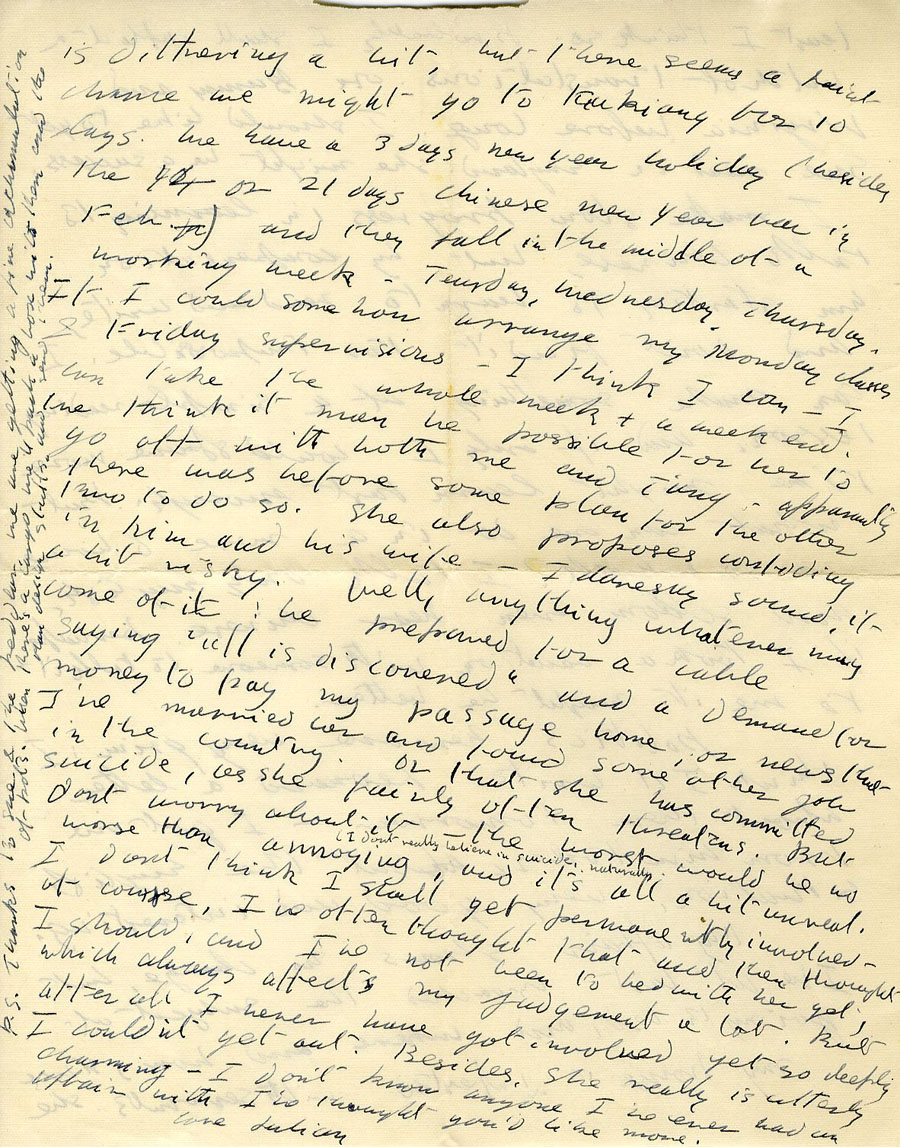 is dithering a bit, but there seems a faint
chance we might go to Kiukiang for 10
days. We have a 3 days new year holiday (besides
the 14 or 21 days Chinese new year hol in
Feb.) and they fall in the middle of a
working week - Tuesday, Wednesday, Thursday.
If I could some how arrange my Monday classes
& Friday supervisions - I think I can - I
can take the whole week + a week end.
We think it may be possible for her to
go off with both me and Tang - apparently
there was before some plan for the other
two to do so. She also proposes confiding
in him and his wife - I daresay sound, if
a bit risky. Well, anything whatever may
come of it: be prepared for a cable
saying "all is discovered" and a demand for
money to pay my passage home, or news that
I've married her and found some other job
in the country. Or that she has committed
suicide, as she fairly often threatens. But
don't worry about it - the worst would be no
(I don't really believe in suicide, naturally)
worse than annoying, and it's all a bit unreal.
I don't think I shall get permanently involved -
of course, I've often thought that and then thought
I should, and I've not been to bed with her yet,
which always affects my judgement a lot. But
after all I never have got involved yet so deeply
I couldn't get out. Besides, she really is utterly
charming - I don't know anyone I've ever had an
affair with I've thought you'd like more.
love Julian
P.S. Thanks to Sue & the peddlar we are getting a fine accumulation
of pots. When there's a cargo we'll pack a box